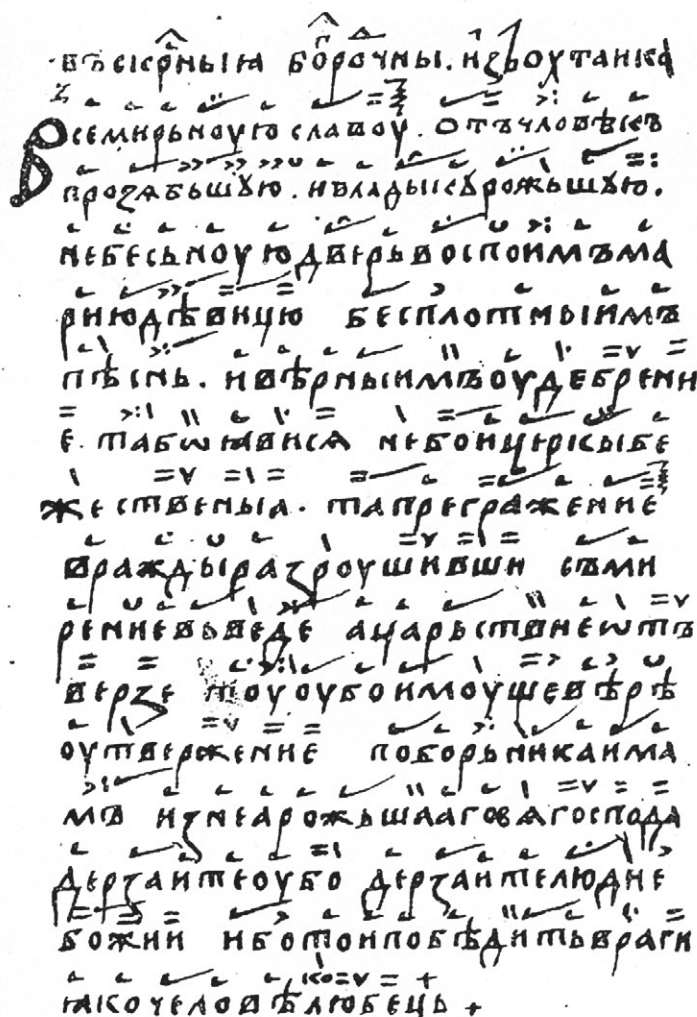 въскрⷭ҇ныꙗ бо҃рочны. изъоутаика
Всемирьноую славоу. отъчловѣкъ
прозѧбъшꙋю. ивладыкꙋрожьшꙋю.
небесьноуюдверьвоспоимъма
риюдѣвицю бесплотныимъ
пѣснь. ивѣрныимъоудебрени
е. табѡꙗвисѧ небоицеркыбе
жественыа. тапрегражение
враждыразроушивши съми
рениевъведе ацарьствиеѡтъ
верзе тоуоубоимоущевѣрѣ
оутвержение поборьникаима
мъ изнеарожьшаагосѧгоспода
дерзаитеоубо дерзаителюдие
божии иботоипобѣдитьвраги
ꙗкочеловѣлюбець +